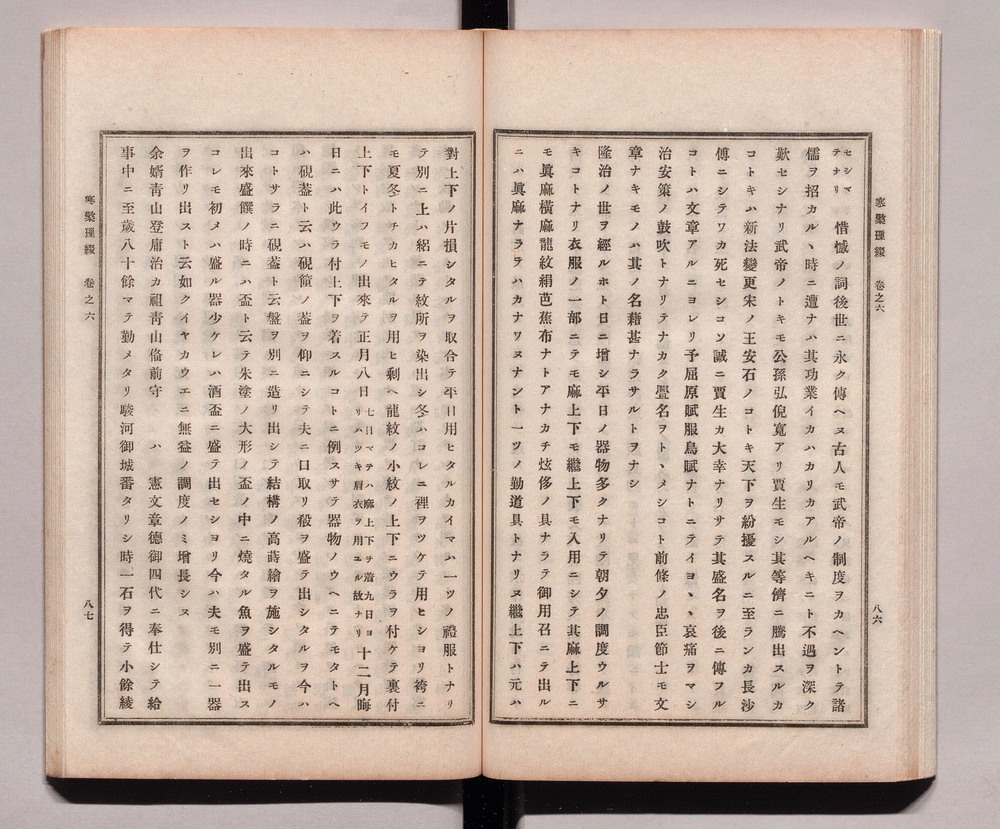 寒檠璅綴 卷之六
八六
セシマ
テナリ 惜憾ノ詞後世ニ永ク傳ヘヌ古人モ武帝ノ制度ヲカヘントテ諸
儒ヲ招カルヽ時ニ遭ナハ其功業イカハカリカアルヘキニト不遇ヲ深ク
歎セシナリ武帝ノトキモ公孫弘倪寬アリ賈生モシ其等儕ニ騰出スルカ
コトキハ新法變更宋ノ王安石ノコトキ天下ヲ紛擾スルニ至ランカ長沙
傅ニシテワカ死セシコソ誠ニ賈生カ大幸ナリサテ其盛名ヲ後ニ傳フル
コトハ文章アルニヨレリ予屈原賦服鳥賦ナトニテイヨヽヽ哀痛ヲマシ
治安策ノ鼓吹トナリテナカク譽名ヲトヽメシコト前條ノ忠臣節士モ文
章ナキモノハ其ノ名藉甚ナラサルトヲナシ
隆治ノ世ヲ經ルホト日ニ增シ平日ノ器物多クナリテ朝夕ノ調度ウルサ
キコトナリ衣服ノ一部ニテモ麻上下モ繼上下モ入用ニシテ其麻上下ニ
モ眞麻橫麻龍紋絹芭蕉布ナトアナカチ炫侈ノ具ナラテ御用召ニテ出ル
ニハ眞麻ナラテハカナワヌナント一ツノ勤道具トナリヌ繼上下ハ元ハ
對上下ノ片損シタルヲ取合テ平日用ヒタルカイマハ一ツノ禮服トナリ
テ別ニ上ハ絽ニテ紋所ヲ染出シ冬ハコレニ裡ヲツケテ用ヒシヨリ袴ニ
モ夏冬トチカヒタルヲ用ヒ剩ヘ龍紋ノ小紋ノ上下ニウラヲ付ケテ裏付
上下トイフモノ出來テ正月八日 七日マテハ麻上下サ着九日ヨ
リハツキ肩衣ヲ用ユル故ナリ 十二月晦
日ニハ此ウラ付上下ヲ着スルコトニ例スサテ器物ノウヘニテモタトヘ
ハ硯葢ト云ハ硯篚ノ葢ヲ仰ニシテ夫ニ口取リ殽ヲ盛テ出シタルヲ今ハ
コトサラニ硯葢ト云盤ヲ別ニ造リ出シテ結構ノ高蒔繪ヲ施シタルモノ
出來盛饌ノ時ニハ盃ト云テ朱塗ノ大形ノ盃ノ中ニ燒タル魚ヲ盛テ出ス
コレモ初メハ盛ル器少ケレハ酒盃ニ盛テ出セシヨリ今ハ夫モ別ニ一器
ヲ作リ出スト云如クイヤカウエニ無益ノ調度ノミ增長シヌ
余婿靑山登庸治カ祖靑山俻前守 ハ 憲文章德御四代ニ奉仕シテ給
事中ニ至歲八十餘マテ勤メタリ駿河御城番タリシ時一石ヲ得テ小餘綾
寒檠璅綴 卷之六
八七